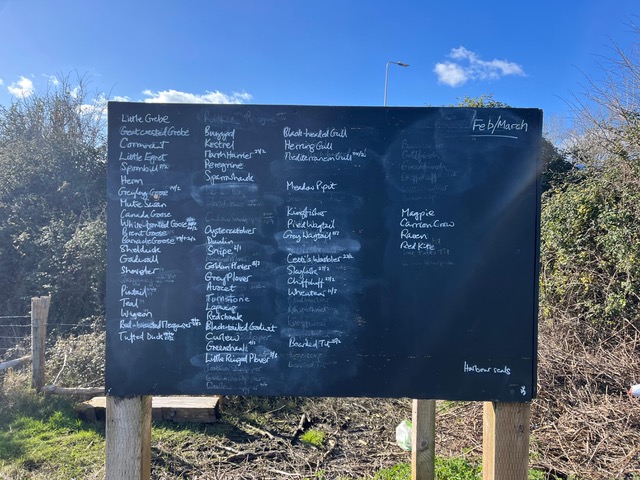 Feb/March
Little Grebe
Great crested Grebe
Cormorant
Little Egret
Spoonbill
Heron
Greylag Goose
Mute Swan
Canada Goose
White-fronted Goose
Brent Goose
Barnacle Goose
Shelduck
Gadwall
Shoveler
Pintail
Teal
Wigeon
Red-breasted Merganser
Tufted Duck
Buzzard
Kestrel
Marsh Harrier
Peregrine
Sparrowhawk
Oystercatcher
Dunlin
Snipe
Golden Plover
Grey Plover
Avocet
Turnstone
Lapwing
Redshank
Black-tailed Godwit
Curlew
Greenshank
Little Ringed Plover
Black-headed Gull
Herring Gull
Mediterranean Gull
Meadow Pipit
Kingfisher
Pied Wagtail
Grey Wagtail
Cetti's Warbler
Skylark
Chiffchaff
Wheatear
Bearded Tit
Magpie
Carrion Crow
Raven
Red Kite
Harbour seals